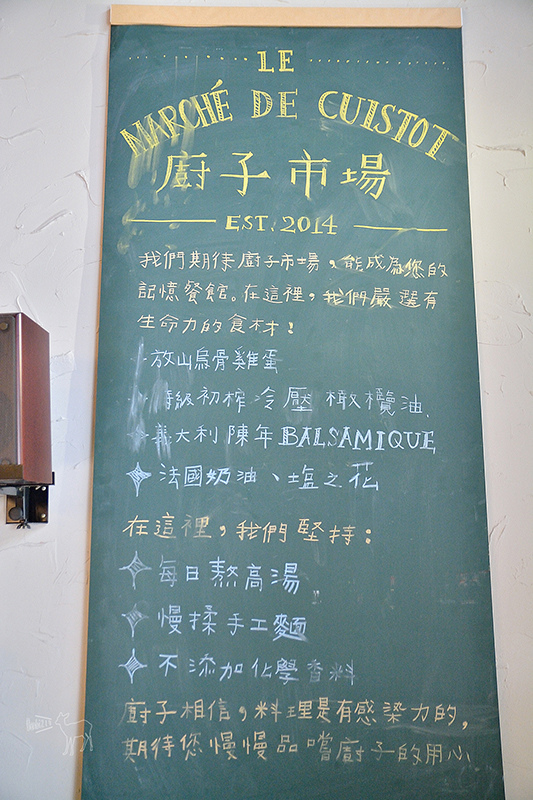 LE
MARCHÉ DE CUISTOT
廚子市場
EST. 2014
我們期待廚子市場，能成為您的
記憶餐館。在這裡，我們嚴選有
生命力的食材！
放山烏骨雞蛋
特級初榨冷壓橄欖油.
義大利陳年BALSAMIQUE
法國奶油、塩之花
在這裡，我們堅持：
每日熬高湯
慢揉手工麵
不添加化學香料
廚子相信，料理是有感染力的，
期待您慢慢品嚐廚子的用心.